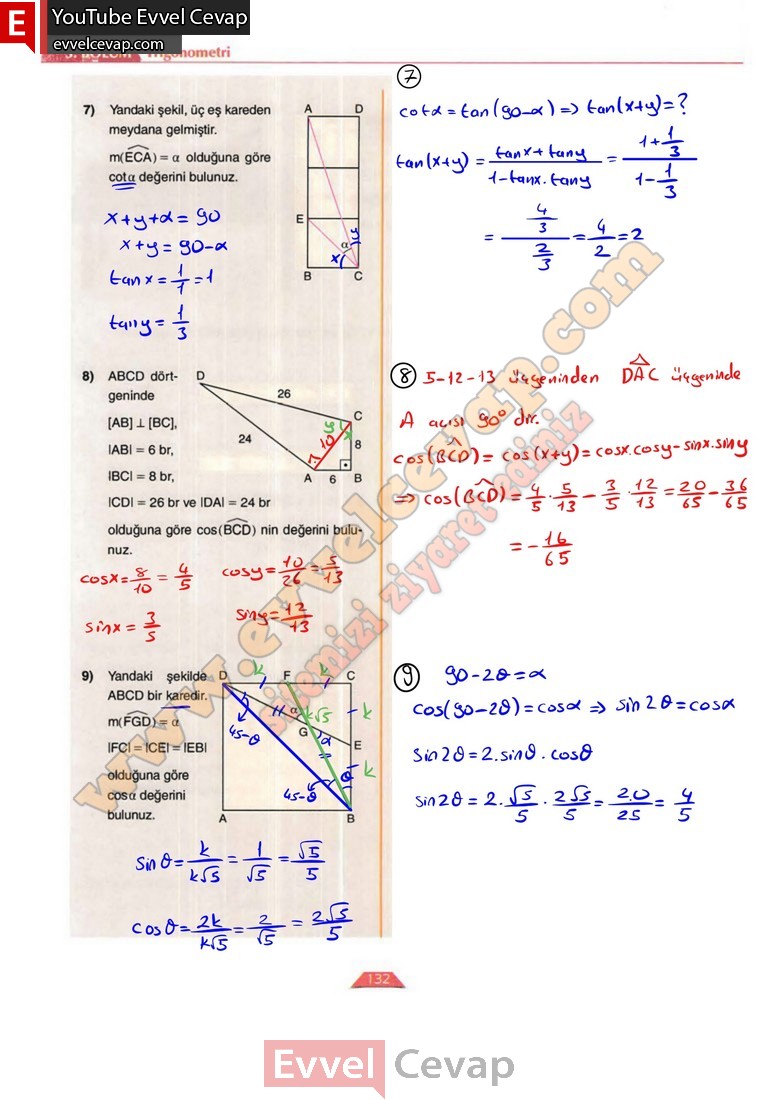 YouTube Evvel Cevap
evvelcevap.com
3. BÖLÜM Trigonometri
7) Yandaki şekil, üç eş kareden
meydana gelmiştir.
m(ECA) = α olduğuna göre
cotα değerini bulunuz.
A D
E
α
x y
B C
x+y+α=90
x+y=90-α
tanx=1/1=1
tany=1/3
7
cotα=tan(90-α)⇒tan(x+y)=?
tan(x+y)=(tanx+tany)/(1-tanx.tany)=(1+1/3)/(1-1/3)
=(4/3)/(2/3)=4/2=2
8) ABCD dört-
geninde
[AB] ⊥ [BC],
IABI = 6 br,
IBCI = 8 br,
ICDI = 26 br ve IDAI = 24 br
olduğuna göre cos(BCD) nin değerini bulu-
nuz.
D
26
C
y x
24
10
8
A 6 B
cosx=8/10=4/5 cosy=10/26=5/13
sinx=3/5 siny=12/13
8 5-12-13 üçgeninden DAC üçgeninde
A açısı 90° dir.
cos(BCD)=cos(x+y)=cosx.cosy-sinx.siny
⇒cos(BCD)=4/5.5/13-3/5.12/13=20/65-36/65
=-16/65
9) Yandaki şekilde
ABCD bir karedir.
m(FGD) = α
IFCI = ICEI = IEBI
olduğuna göre
cosα değerini
bulunuz.
D k F k C
α k√5 k
45-θ G α E
k
45-θ θ
A B
sinθ=k/k√5=1/√5=√5/5
cosθ=2k/k√5=2/√5=2√5/5
9 90-2θ=α
cos(90-2θ)=cosα⇒sin2θ=cosα
sin2θ=2.sinθ.cosθ
sin2θ=2.√5/5.2√5/5=20/25=4/5
www.evvelcevap.com
sitemizi ziyaret ediniz
132
Evvel Cevap